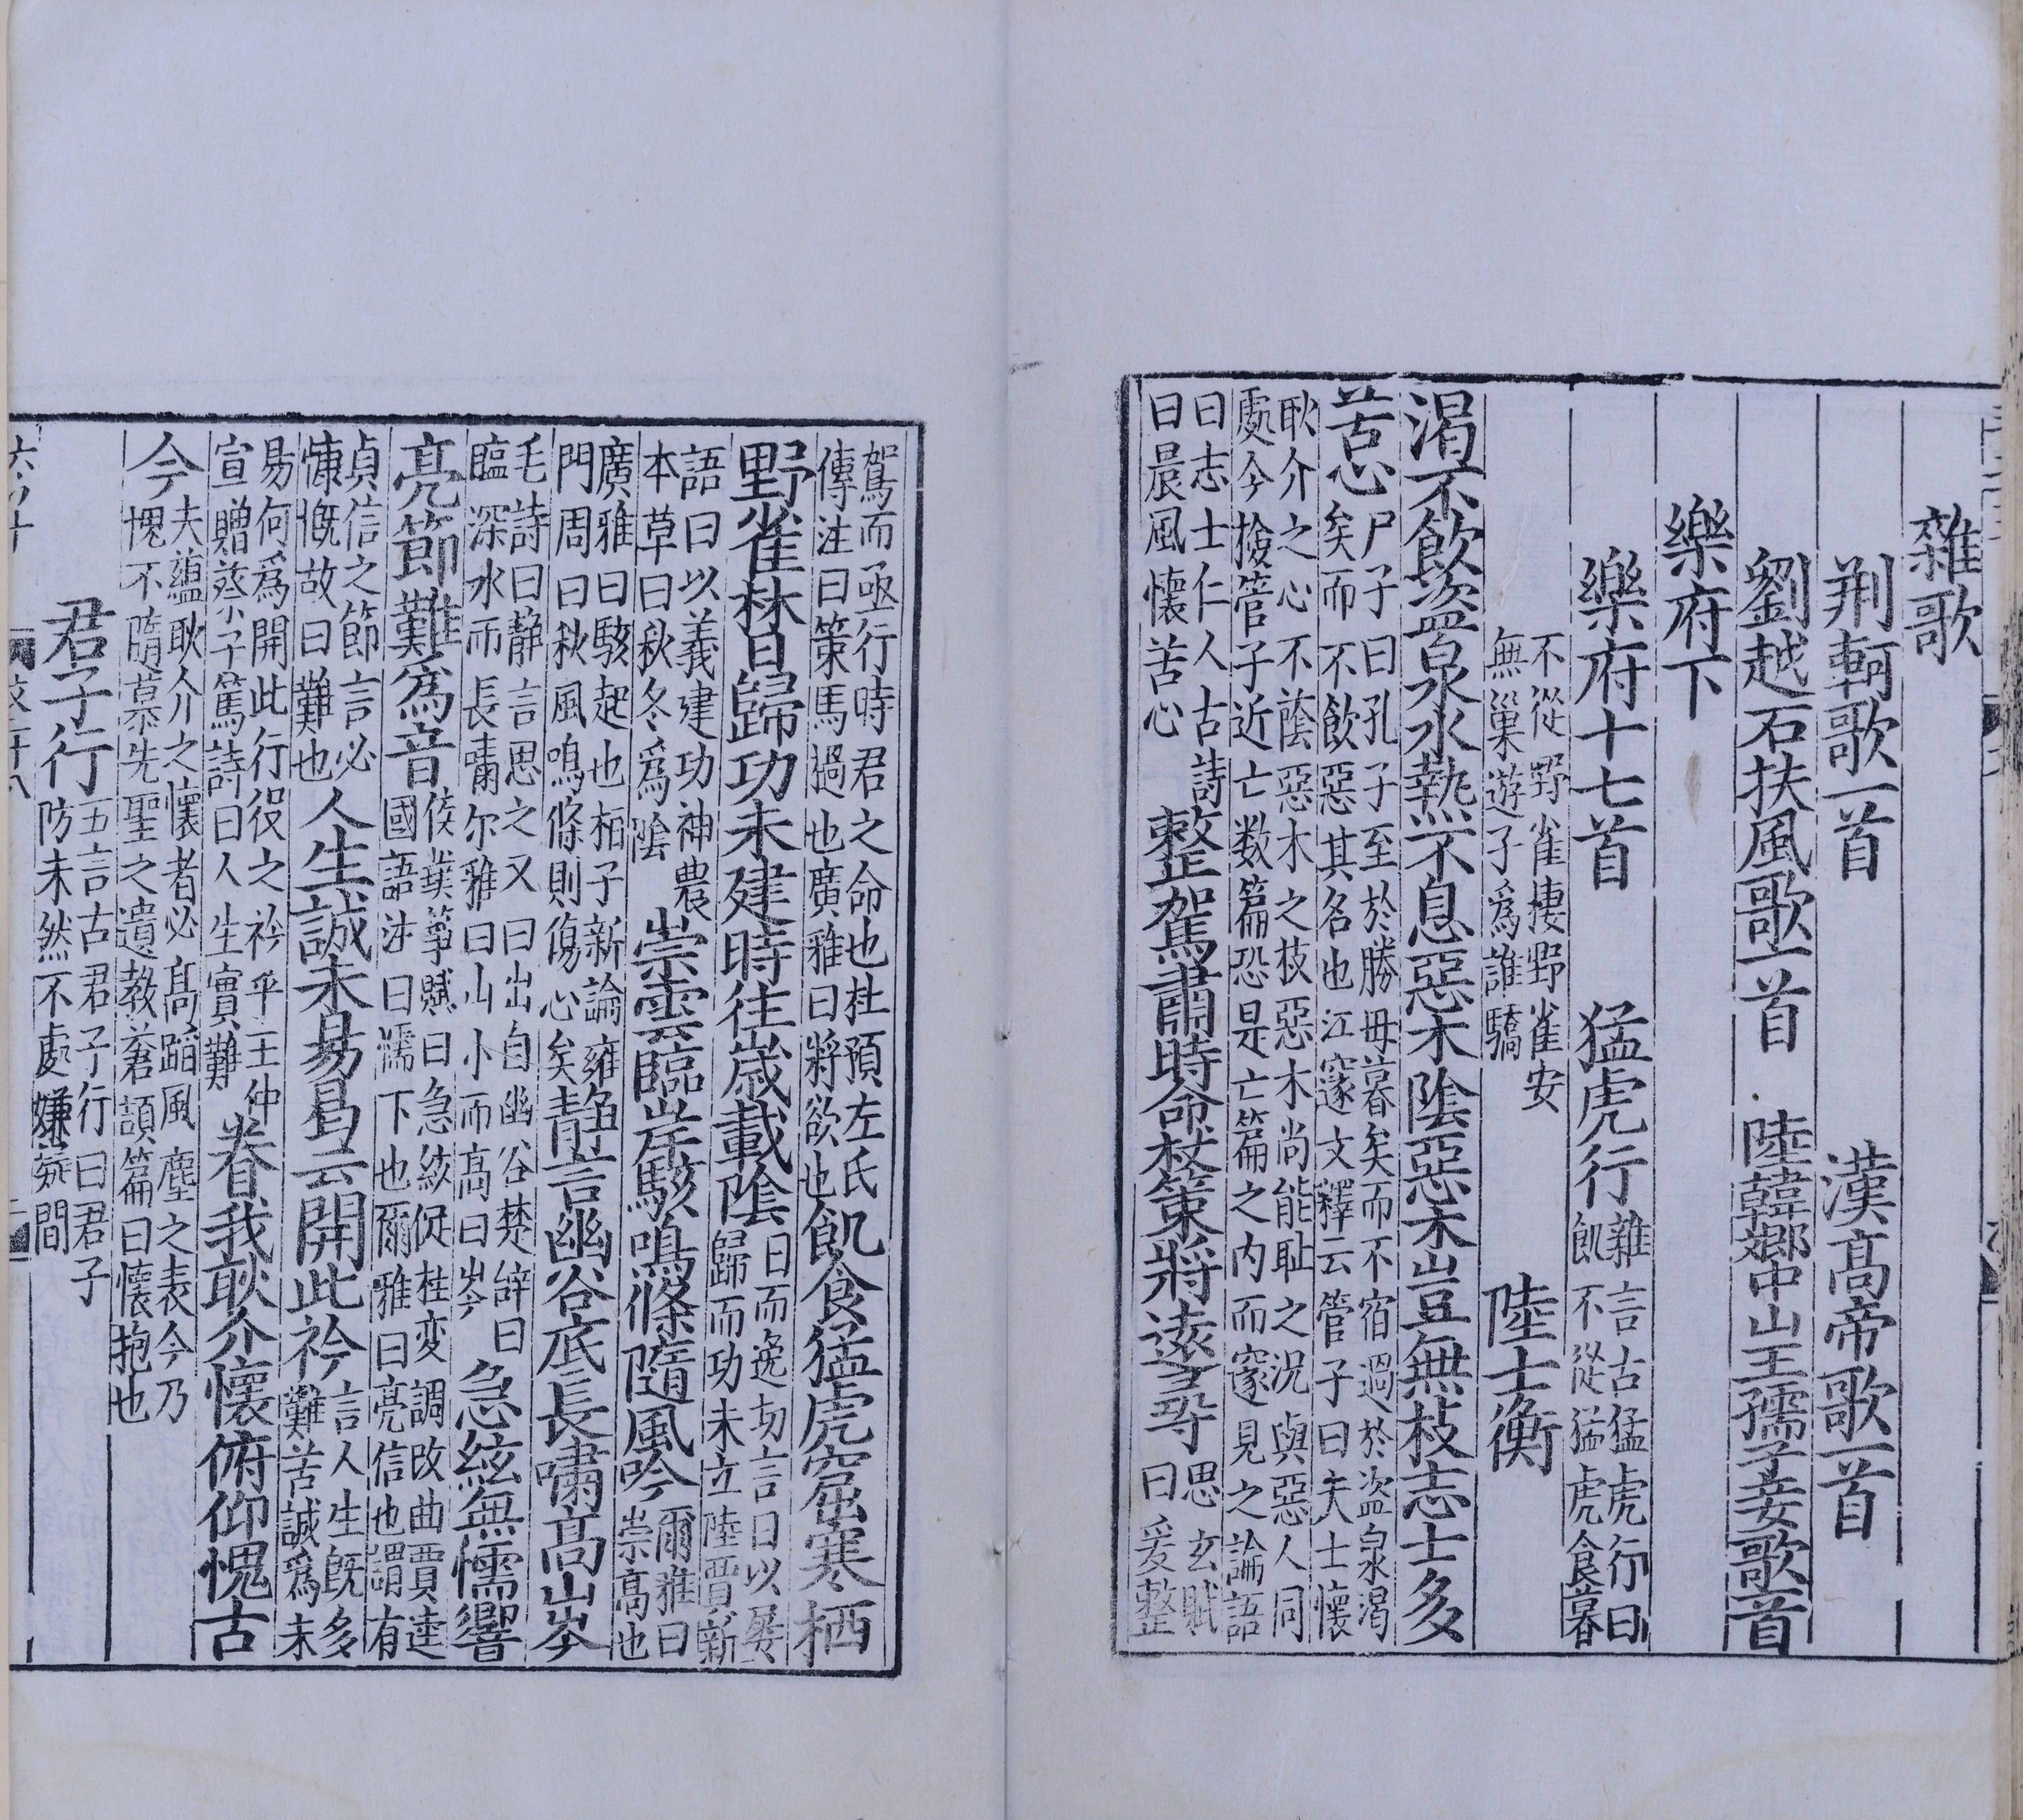 雜歌
荆軻歌一首　漢髙帝歌一首
劉越石扶風歌一首　陸韓郷中山王孺子妾歌一首
樂府下
樂府十七首　猛虎行
雜言古猛虎行曰
飢不從猛虎食暮
不從野雀棲野雀安
無巢遊子爲誰驕
陸士衡
渴不飲盜泉水熱不息惡木陰惡木豈無枝志士多
苦心
尸子曰孔子至於勝毋暮矣而不宿過於盜泉渴
矣而不飲惡其名也江邃文釋云管子曰夫士懷
耿介之心不蔭惡木之枝惡木尚能耻之況與惡人同
處今撿管子近亡数篇恐是亡篇之内而邃見之論語
曰志士仁人古詩
曰晨風懷苦心
整駕肅時命杖策將逺尋
思玄賦
曰爰整
駕而亟行時君之命也杜預左氏
傳注曰策馬撾也廣雅曰將欲也
飢食猛虎窟寒栖
野雀林日歸功未建時徃歲載隂
日而逸切言日以屡
歸而功未立陸賈新
語曰以義建功神農
本草曰秋冬爲隂
崇雲臨岸駭鳴條隨風吟
爾雅曰
崇高也
廣雅曰駭起也栢子新論雍
門周曰秋風鳴條則傷心矣
静言幽谷底長嘯髙山岑
毛詩曰静言思之又曰出自幽谷楚辞曰
臨深水而長嘯尓雅曰山小而高曰岑
急絃無懦響
亮節難爲音
侯葉筝賦曰急絃促柱变調改曲賈逵
國語注曰懦下也爾雅曰亮信也謂有
貞信之節言必
慷慨故曰難也
人生誠未易曷云開此衿
言人生既多
難苦誠爲未
易何爲開此行役之衿乎王仲
宣贈蔡子篤詩曰人生實難
眷我耿介懷俯仰愧古
今
夫藴耿介之懷者必髙蹈風塵之表今乃
愧不隋慕先聖之遺教蒼頡篇曰懷抱也
君子行
五言古君子行曰君子
防未然不處嫌疑間